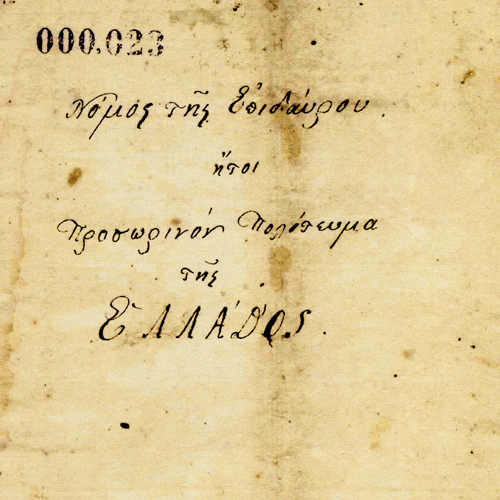 000,023
Νόμος τῆς Ἐπιδαύρου.
ἤτοι
Προσωρινόν Πολίτευμα
τῆς
ἙΛΛΆΔΟΣ.